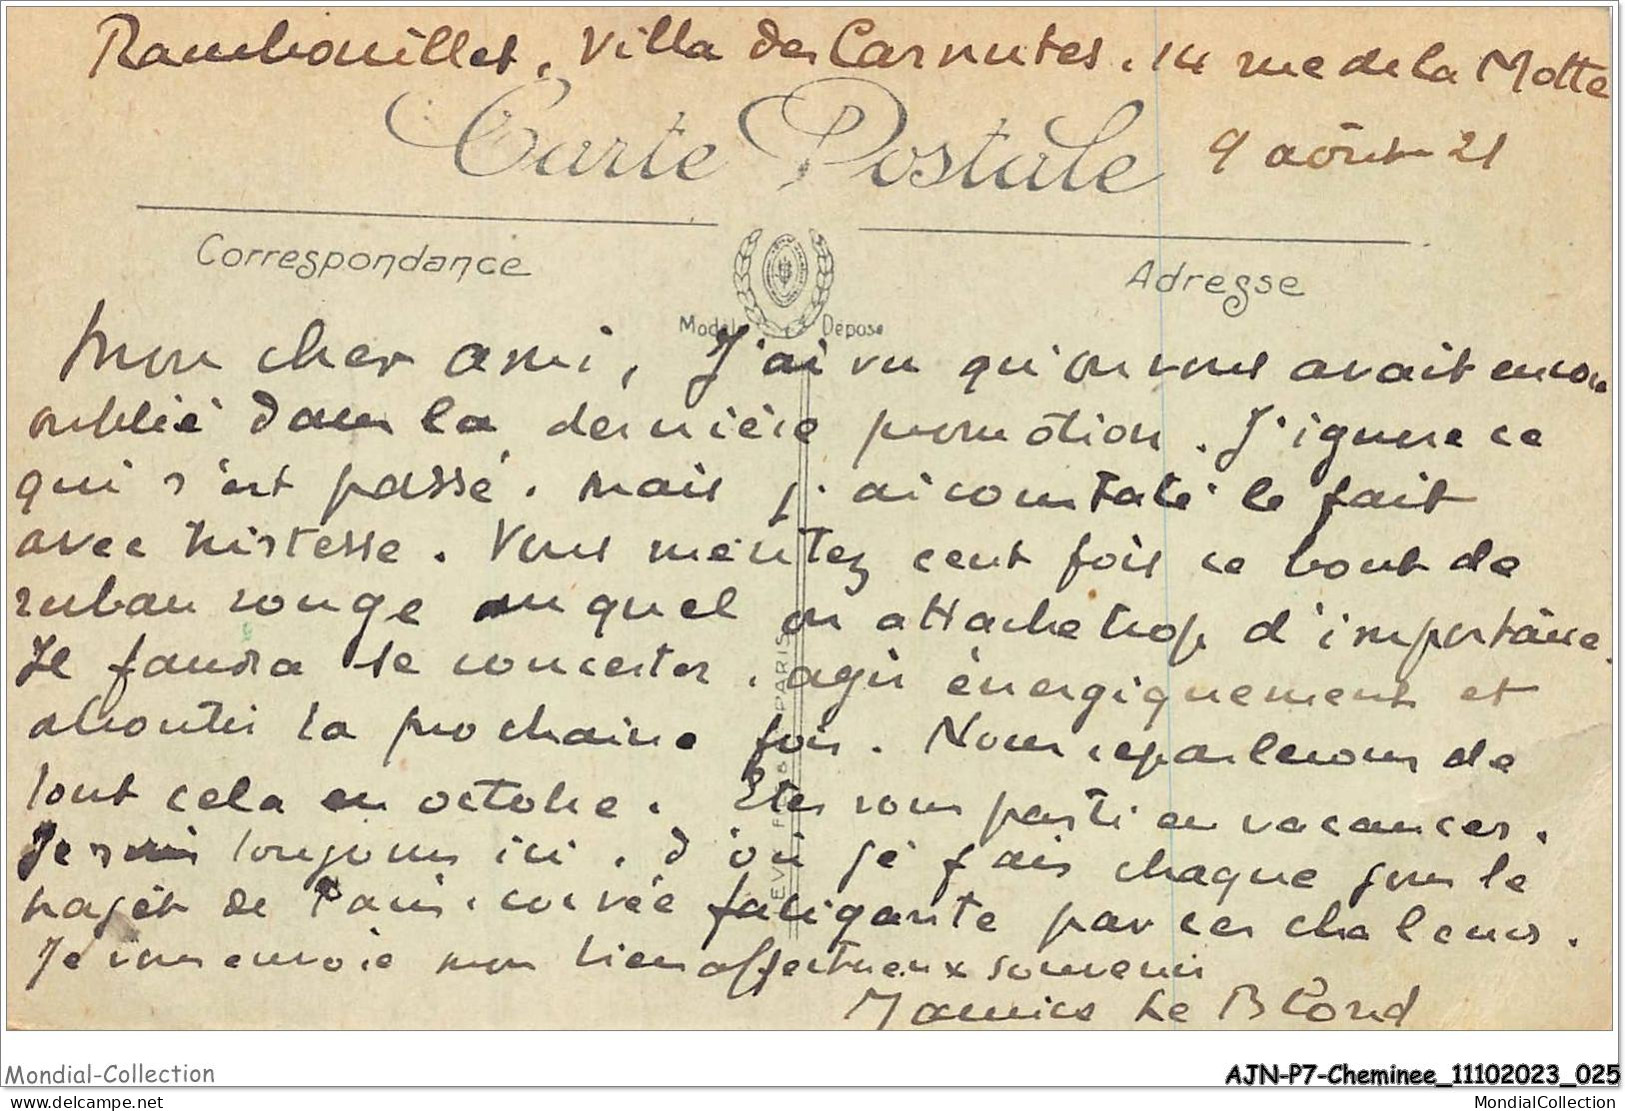 Rambouillet, Villa des Carnutes, 14 rue de la Motte
Carte Postale
9 août 21
Correspondance
Adresse
Modèle Déposé
Mon cher ami, J'ai vu qu'on vous avait encore
oublié dans la dernière promotion. J'ignore ce
qui s'est passé, mais j'ai constaté le fait
avec tristesse. Vous méritez cent fois ce bout de
ruban rouge auquel on attache trop d'importance.
Il faudra se concerter, agir énergiquement et
aboutir la prochaine fois. Nous reparlerons de
tout cela en octobre. Etes vous parti en vacances.
Je suis toujours ici, d'où je fais chaque jour le
trajet de Paris, corvée fatigante par ces chaleurs.
Je vous envoie mon bien affectueux souvenir
Maurice Le Blond
PARIS
Mondial-Collection
AJN-P7-Cheminee_11102023_025
www.delcampe.net
MondialCollection